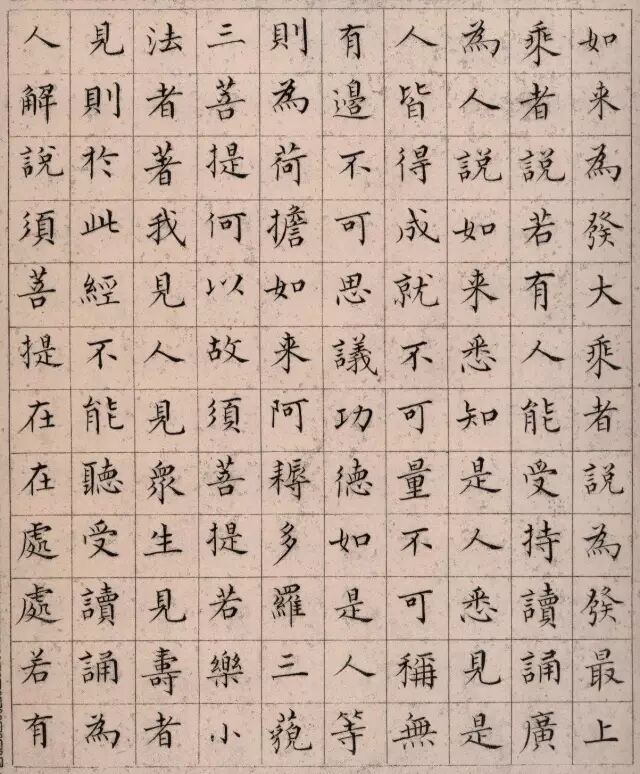 如来為發大乘者說為發最上
乘者說若有人能受持讀誦廣
為人說如来悉知是人悉見是
人皆得成就不可量不可稱無
有邊不可思議功德如是人等
則為荷擔如来阿耨多羅三藐
三菩提何以故須菩提若樂小
法者著我見人見眾生見壽者
見則於此經不能聽受讀誦為
人解說須菩提在在處處若有